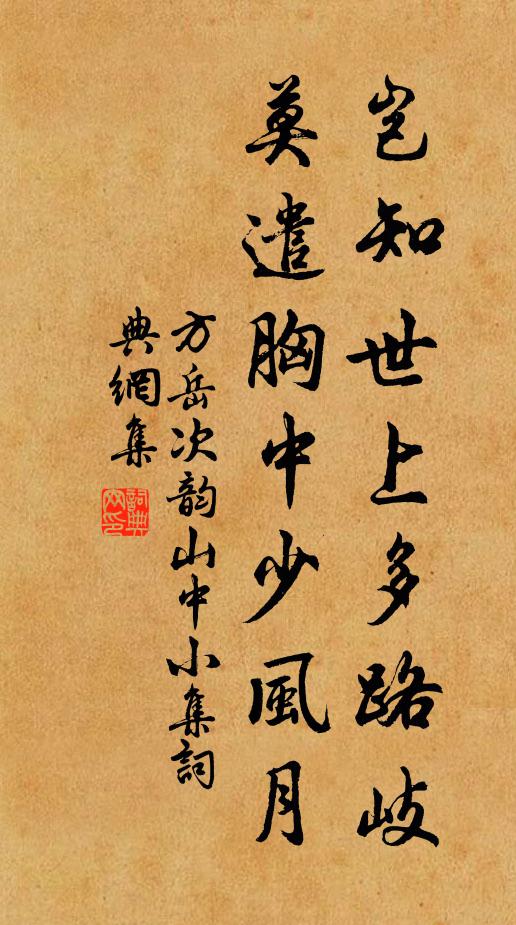 豈知世上多路岐
莫遣胸中少風月
方岳次韵山中小集詞
典網集
詞典網印